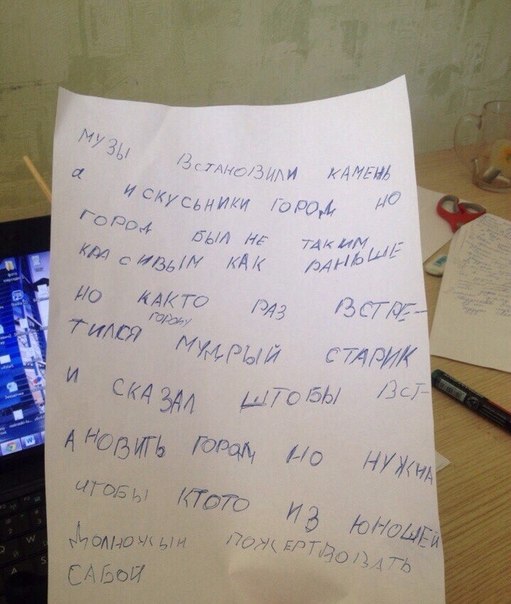 МУЗЫ ВСТАНОВИЛИ КАМЕНЬ
а ИСКУСЬНИКИ ГОРОД НО
ГОРОД БЫЛ НЕ ТАКИМ
КРАСИВЫМ КАК РАНЬШЕ
НО КАКТО РАЗ ВСТРЕ-
ГОРОДУ
ТИЛСЯ МУДРЫЙ СТАРИК
И СКАЗАЛ ШТОБЫ ВСТ-
АНОВИТЬ ГОРОД НО НУЖНА
ЧТОБЫ КТОТО ИЗ ЮНОШЕЙ
ДОЛНОЖЫН ПОЖЕРТВОЗАТЬ
САБОЙ